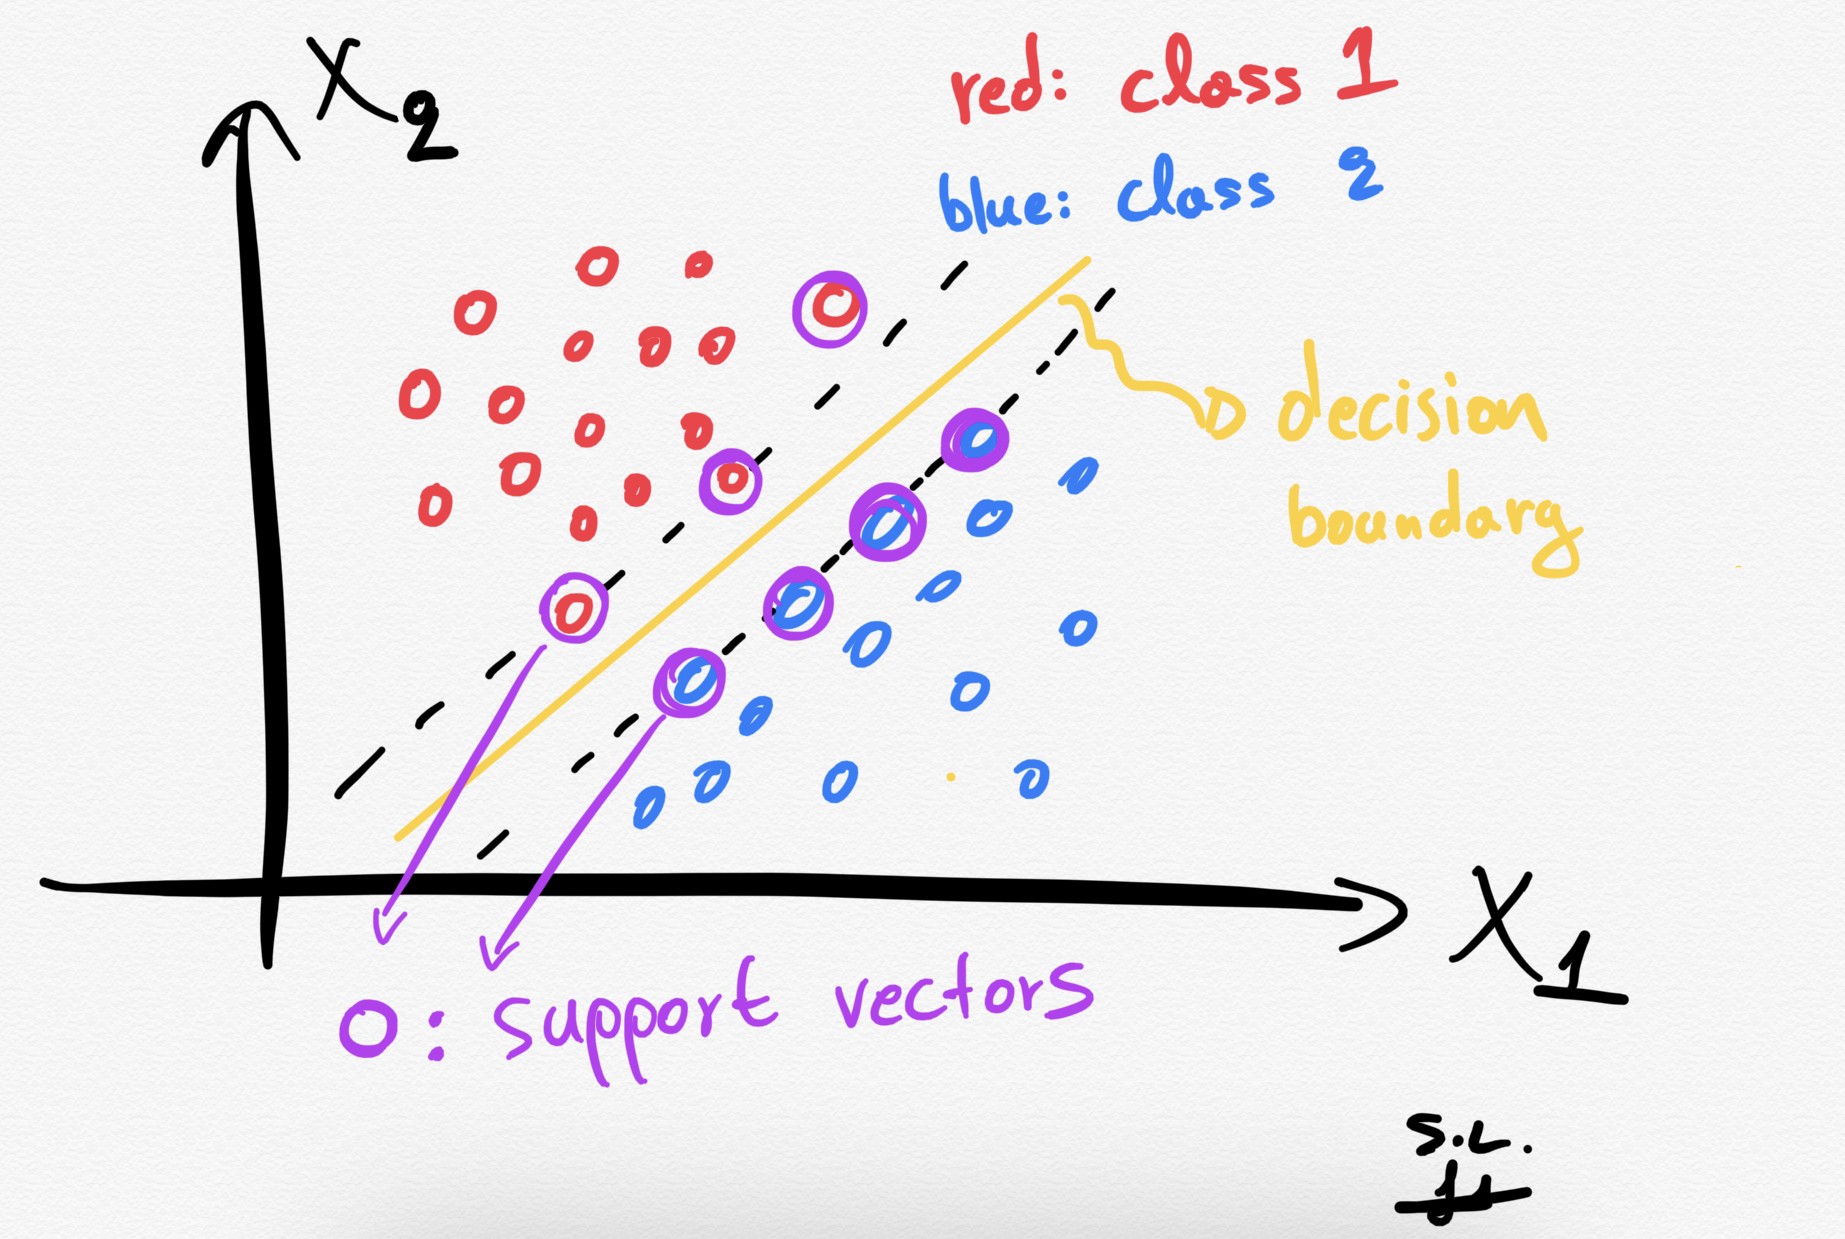 X2
red: class 1
blue: class 2
decision
boundary
X1
O: support vectors
S.L.